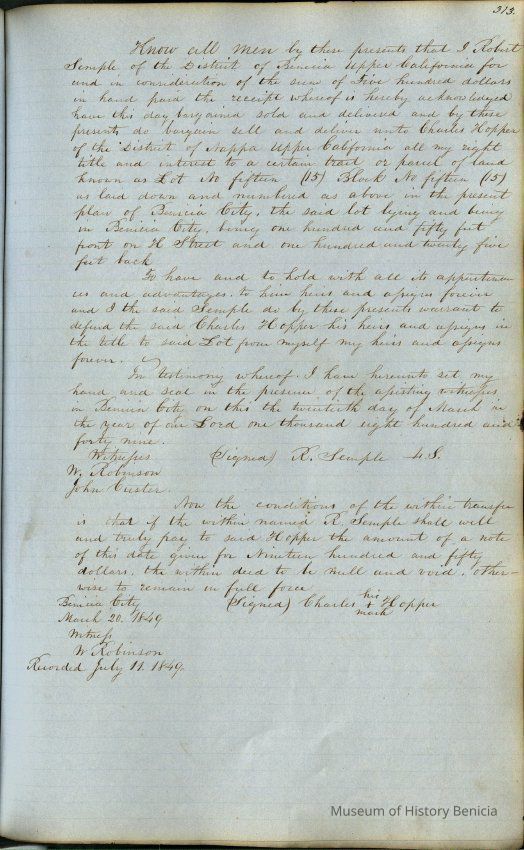 313.
Know all men by these presents that I Robert
Semple of the District of Benicia Upper California for
and in consideration of the sum of Five hundred dollars
in hand paid the receipt whereof is hereby acknowledged
have this day bargained sold and delivered and by these
presents do bargain sell and deliver unto Charles Hopper
of the District of Nappa Upper California all my right
title and interest to a certain tract or parcel of land
known as Lot No fifteen (15) Block No fifteen (15)
as laid down and numbered as above in the present
plan of Benicia City, the said lot lying and being
in Benicia City, being one hundred and fifty feet
front on H Street and one hundred and twenty five
feet back
To have and to hold with all its appurtenan
ces and advantages, to him heirs and assigns forever
and I the said Semple do by these presents warrant to
defend the said Charles Hopper his heirs and assigns in
the title to said Lot from myself my heirs and assigns
forever.
In Testimony whereof I have hereunto set my
hand and seal in the presence of the assisting witnesses
in Benicia City on this the twentieth day of March in
the year of our Lord one thousand eight hundred and
forty nine.
Witnesses (Signed) R. Semple L.S.
W. Robinson
John Custer.
Now the conditions of the within transfer
is that if the within named R. Semple shall well
and truly pay to said Hopper the amount of a note
of this date given for Nineteen hundred and fifty
dollars, the within deed to be null and void, other-
wise to remain in full force
Benicia City (Signed) Charles his + mark Hopper
March 20. 1849
Witness
W Robinson
Recorded July 11. 1849.
Museum of History Benicia